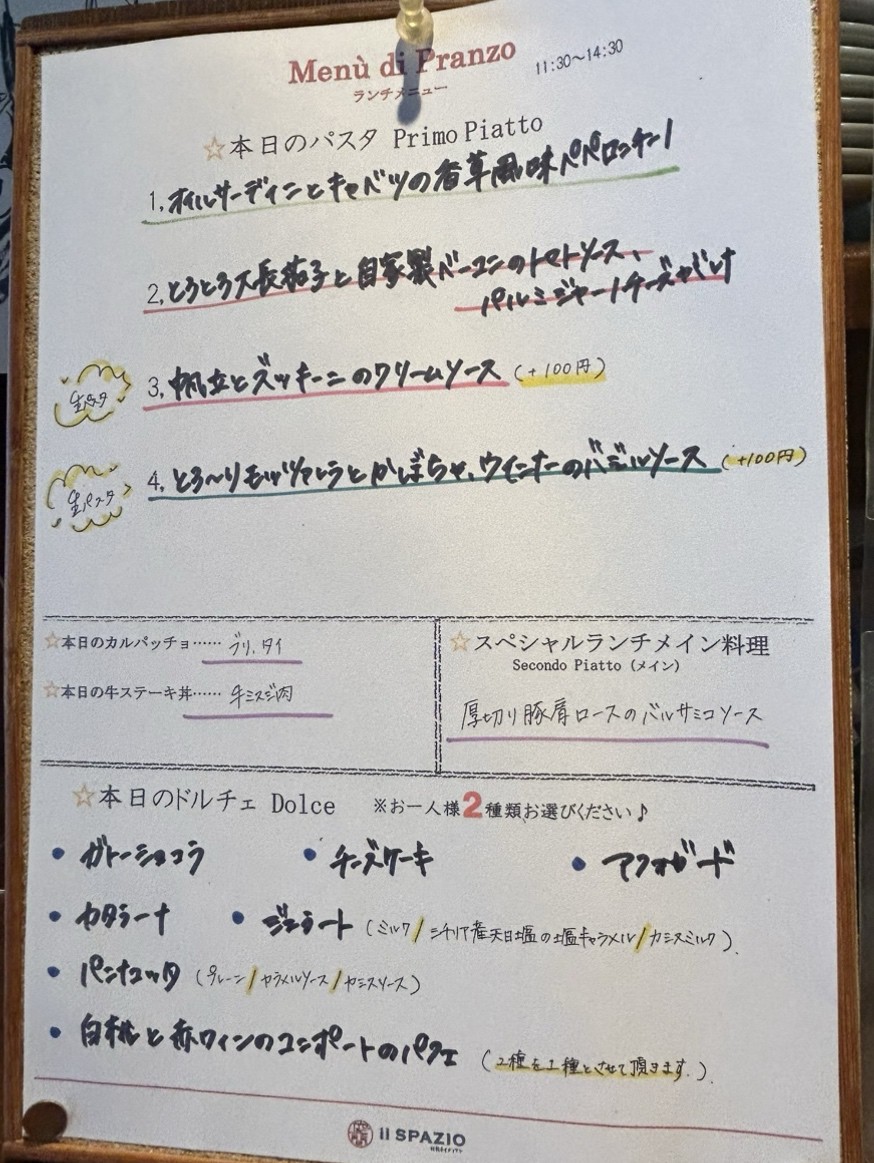 Menù di Pranzo 11:30~14:30
ランチメニュー
☆本日のパスタ Primo Piatto
1, オイルサーディンとキャベツの香草風味ペペロンチーノ
2, とろとろ大長茄子と自家製ベーコンのトマトソース、
パルミジャーノチーズがけ
生パスタ 3, 帆立とズッキーニのクリームソース (+100円)
生パスタ 4, とろ〜りモッツァレラとかぼちゃ、ウインナーのバジルソース (+100円)
☆本日のカルパッチョ…… ブリ、タイ
☆本日の牛ステーキ丼…… 牛ミスジ肉
☆スペシャルランチメイン料理
Secondo Piatto (メイン)
厚切り豚肩ロースのバルサミコソース
☆本日のドルチェ Dolce ※お一人様2種類お選びください♪
• ガトーショコラ • チーズケーキ • アフォガード
• カタラーナ • ジェラート (ミルク/シチリア産天日塩の塩キャラメル/カシスミルク)
• パンナコッタ (プレーン/キャラメルソース/カシスソース)
• 白桃と赤ワインのコンポートのパフェ (2種を1種とさせて頂きます。)
il SPAZIO